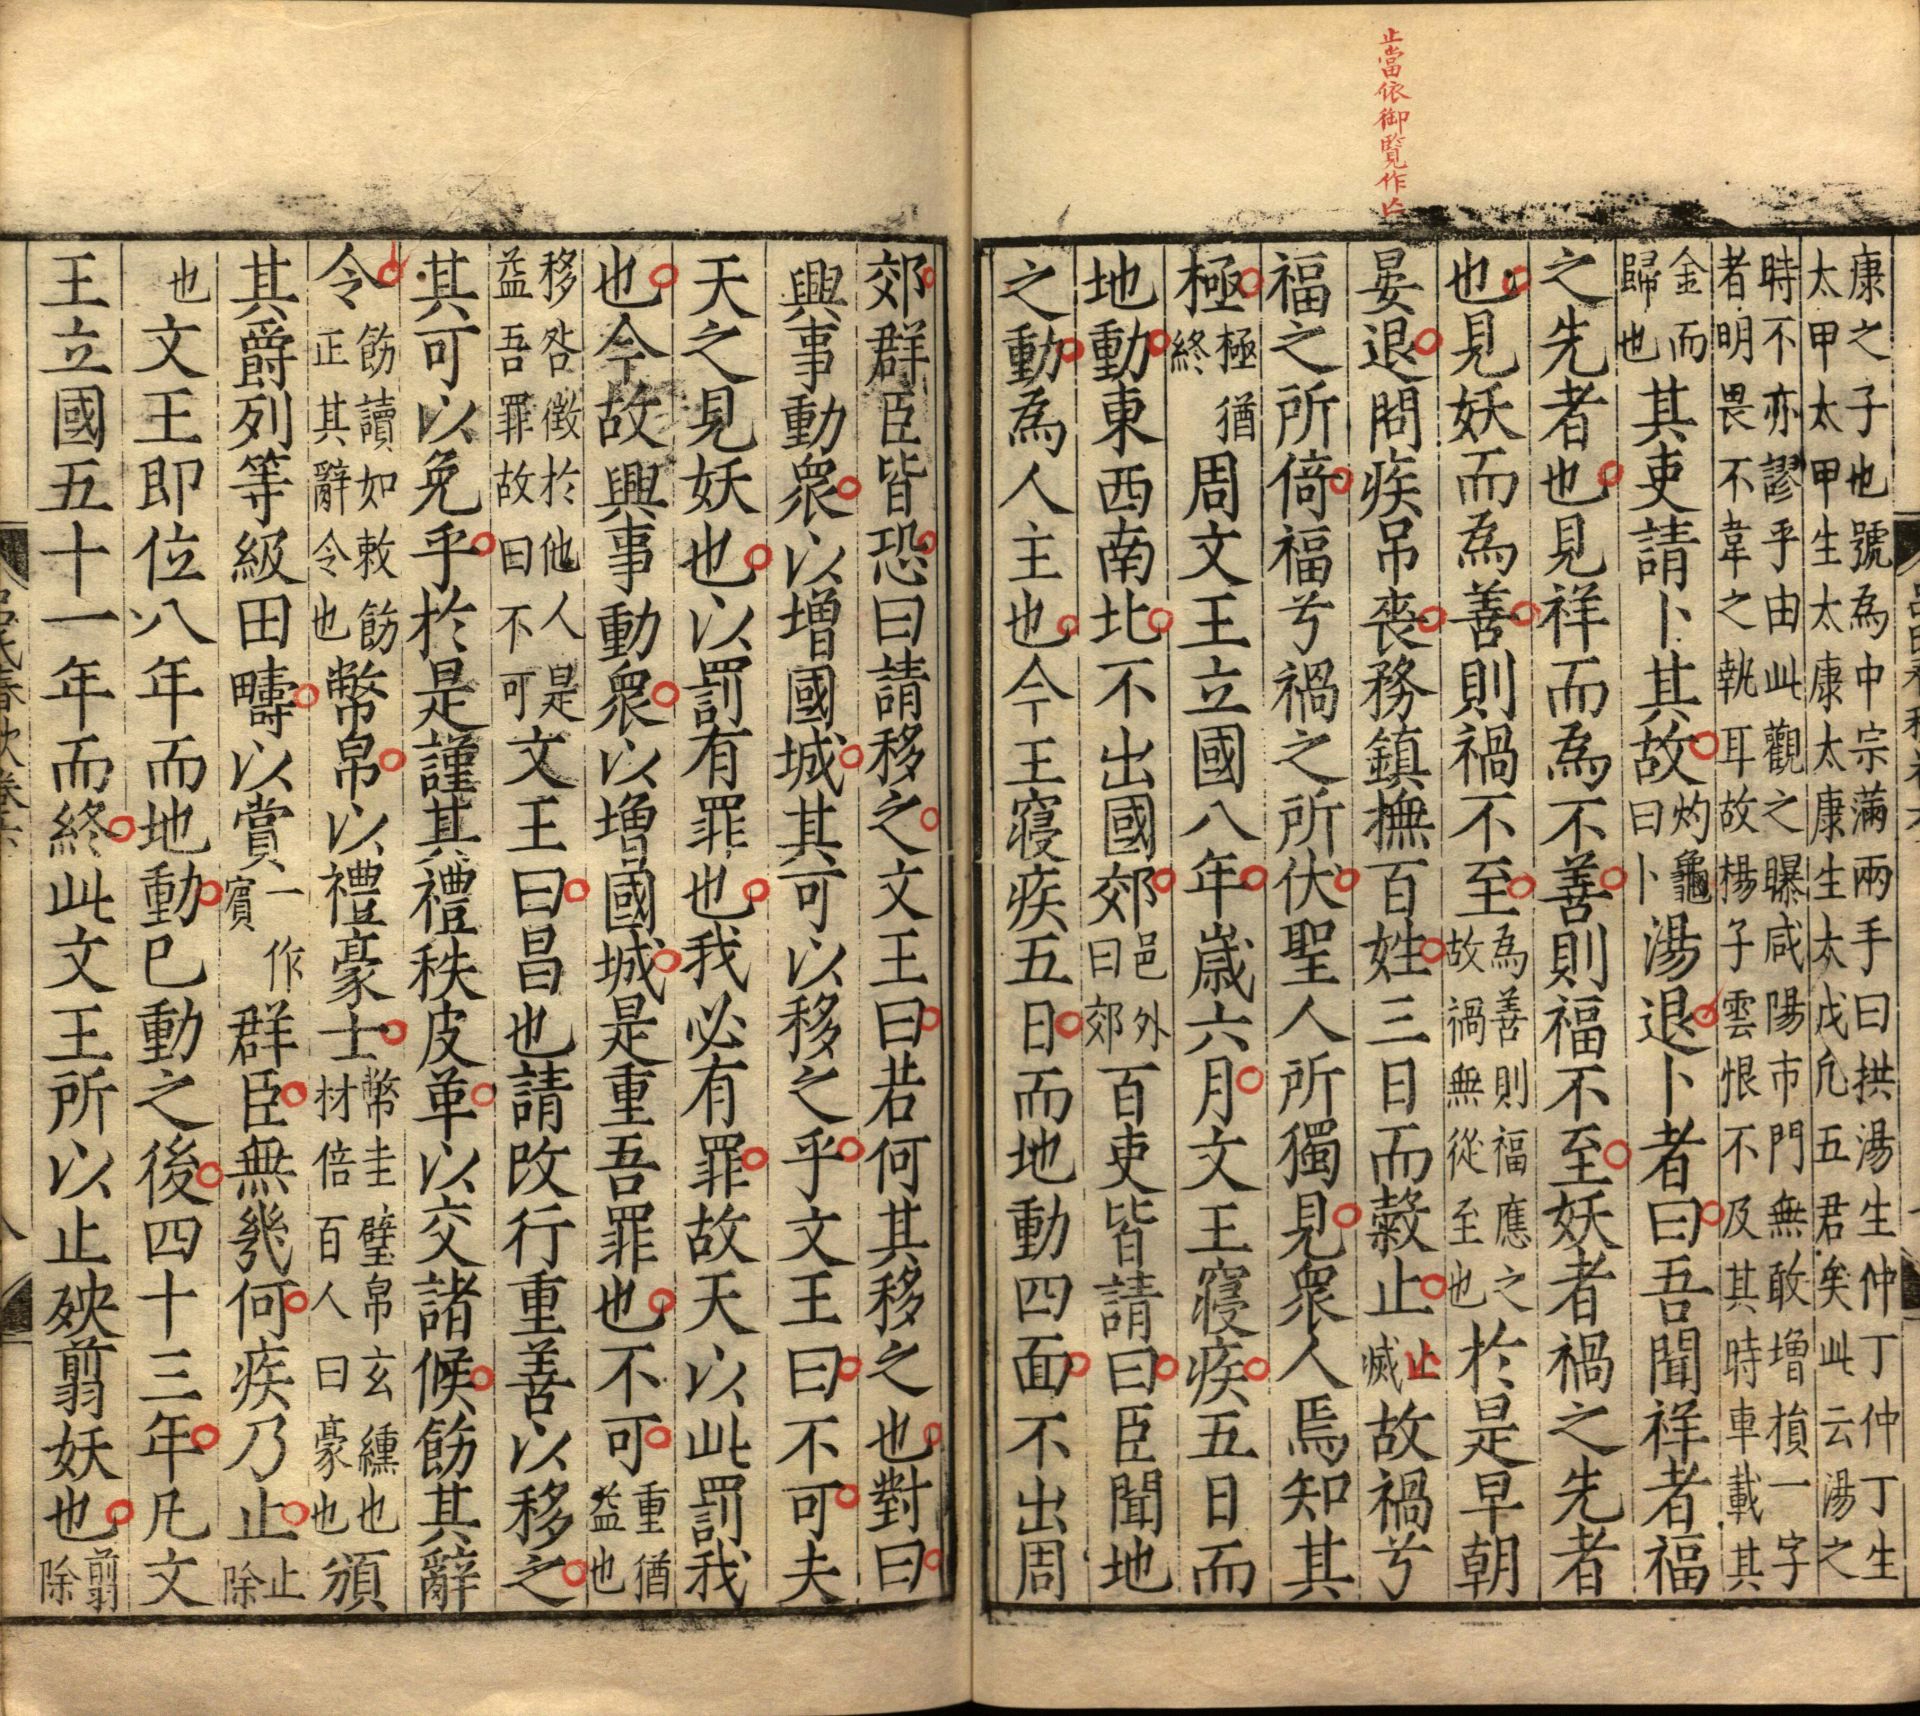 止當依御覽作亡
康之子也號為中宗滿兩手曰拱湯生仲丁仲丁生
太甲太甲生太康太康生太戊凡五君矣此云湯之
時不亦謬乎由此觀之曝咸陽市門無敢增損一字
者明畏不韋之執耳故楊子雲恨不及其時車載其
金而歸也其吏請卜其故灼龜曰卜湯退卜者曰吾聞祥者福
之先者也見祥而為不善則福不至妖者禍之先者
也見妖而為善則禍不至為善則福應之故禍無從至也於是早朝
晏退問疾吊喪務鎮撫百姓三日而穀止止滅故禍兮
福之所倚福兮禍之所伏聖人所獨見衆人焉知其
極極猶終周文王立國八年歲六月文王寢疾五日而
地動東西南北不出國郊邑外曰郊百吏皆請曰臣聞地
之動為人主也今王寢疾五日而地動四面不出周
郊群臣皆恐曰請移之文王曰若何其移之也對曰
興事動衆以增國城其可以移之乎文王曰不可夫
天之見妖也以罰有罪也我必有罪故天以此罰我
也今故興事動衆以增國城是重吾罪也不可重猶益也
移咎徵於他人是益吾罪故曰不可文王曰昌也請改行重善以移之
其可以免乎於是謹其禮秩皮革以交諸候飭其辭
令飭讀如敕飭正其辭令也幣帛以禮豪士幣圭璧帛玄纁也材倍百人曰豪也頒
其爵列等級田疇以賞一作賓群臣無幾何疾乃止止除
也文王即位八年而地動已動之後四十三年凡文
王立國五十一年而終此文王所以止殃翦妖也翦除
呂氏春秋卷六
八